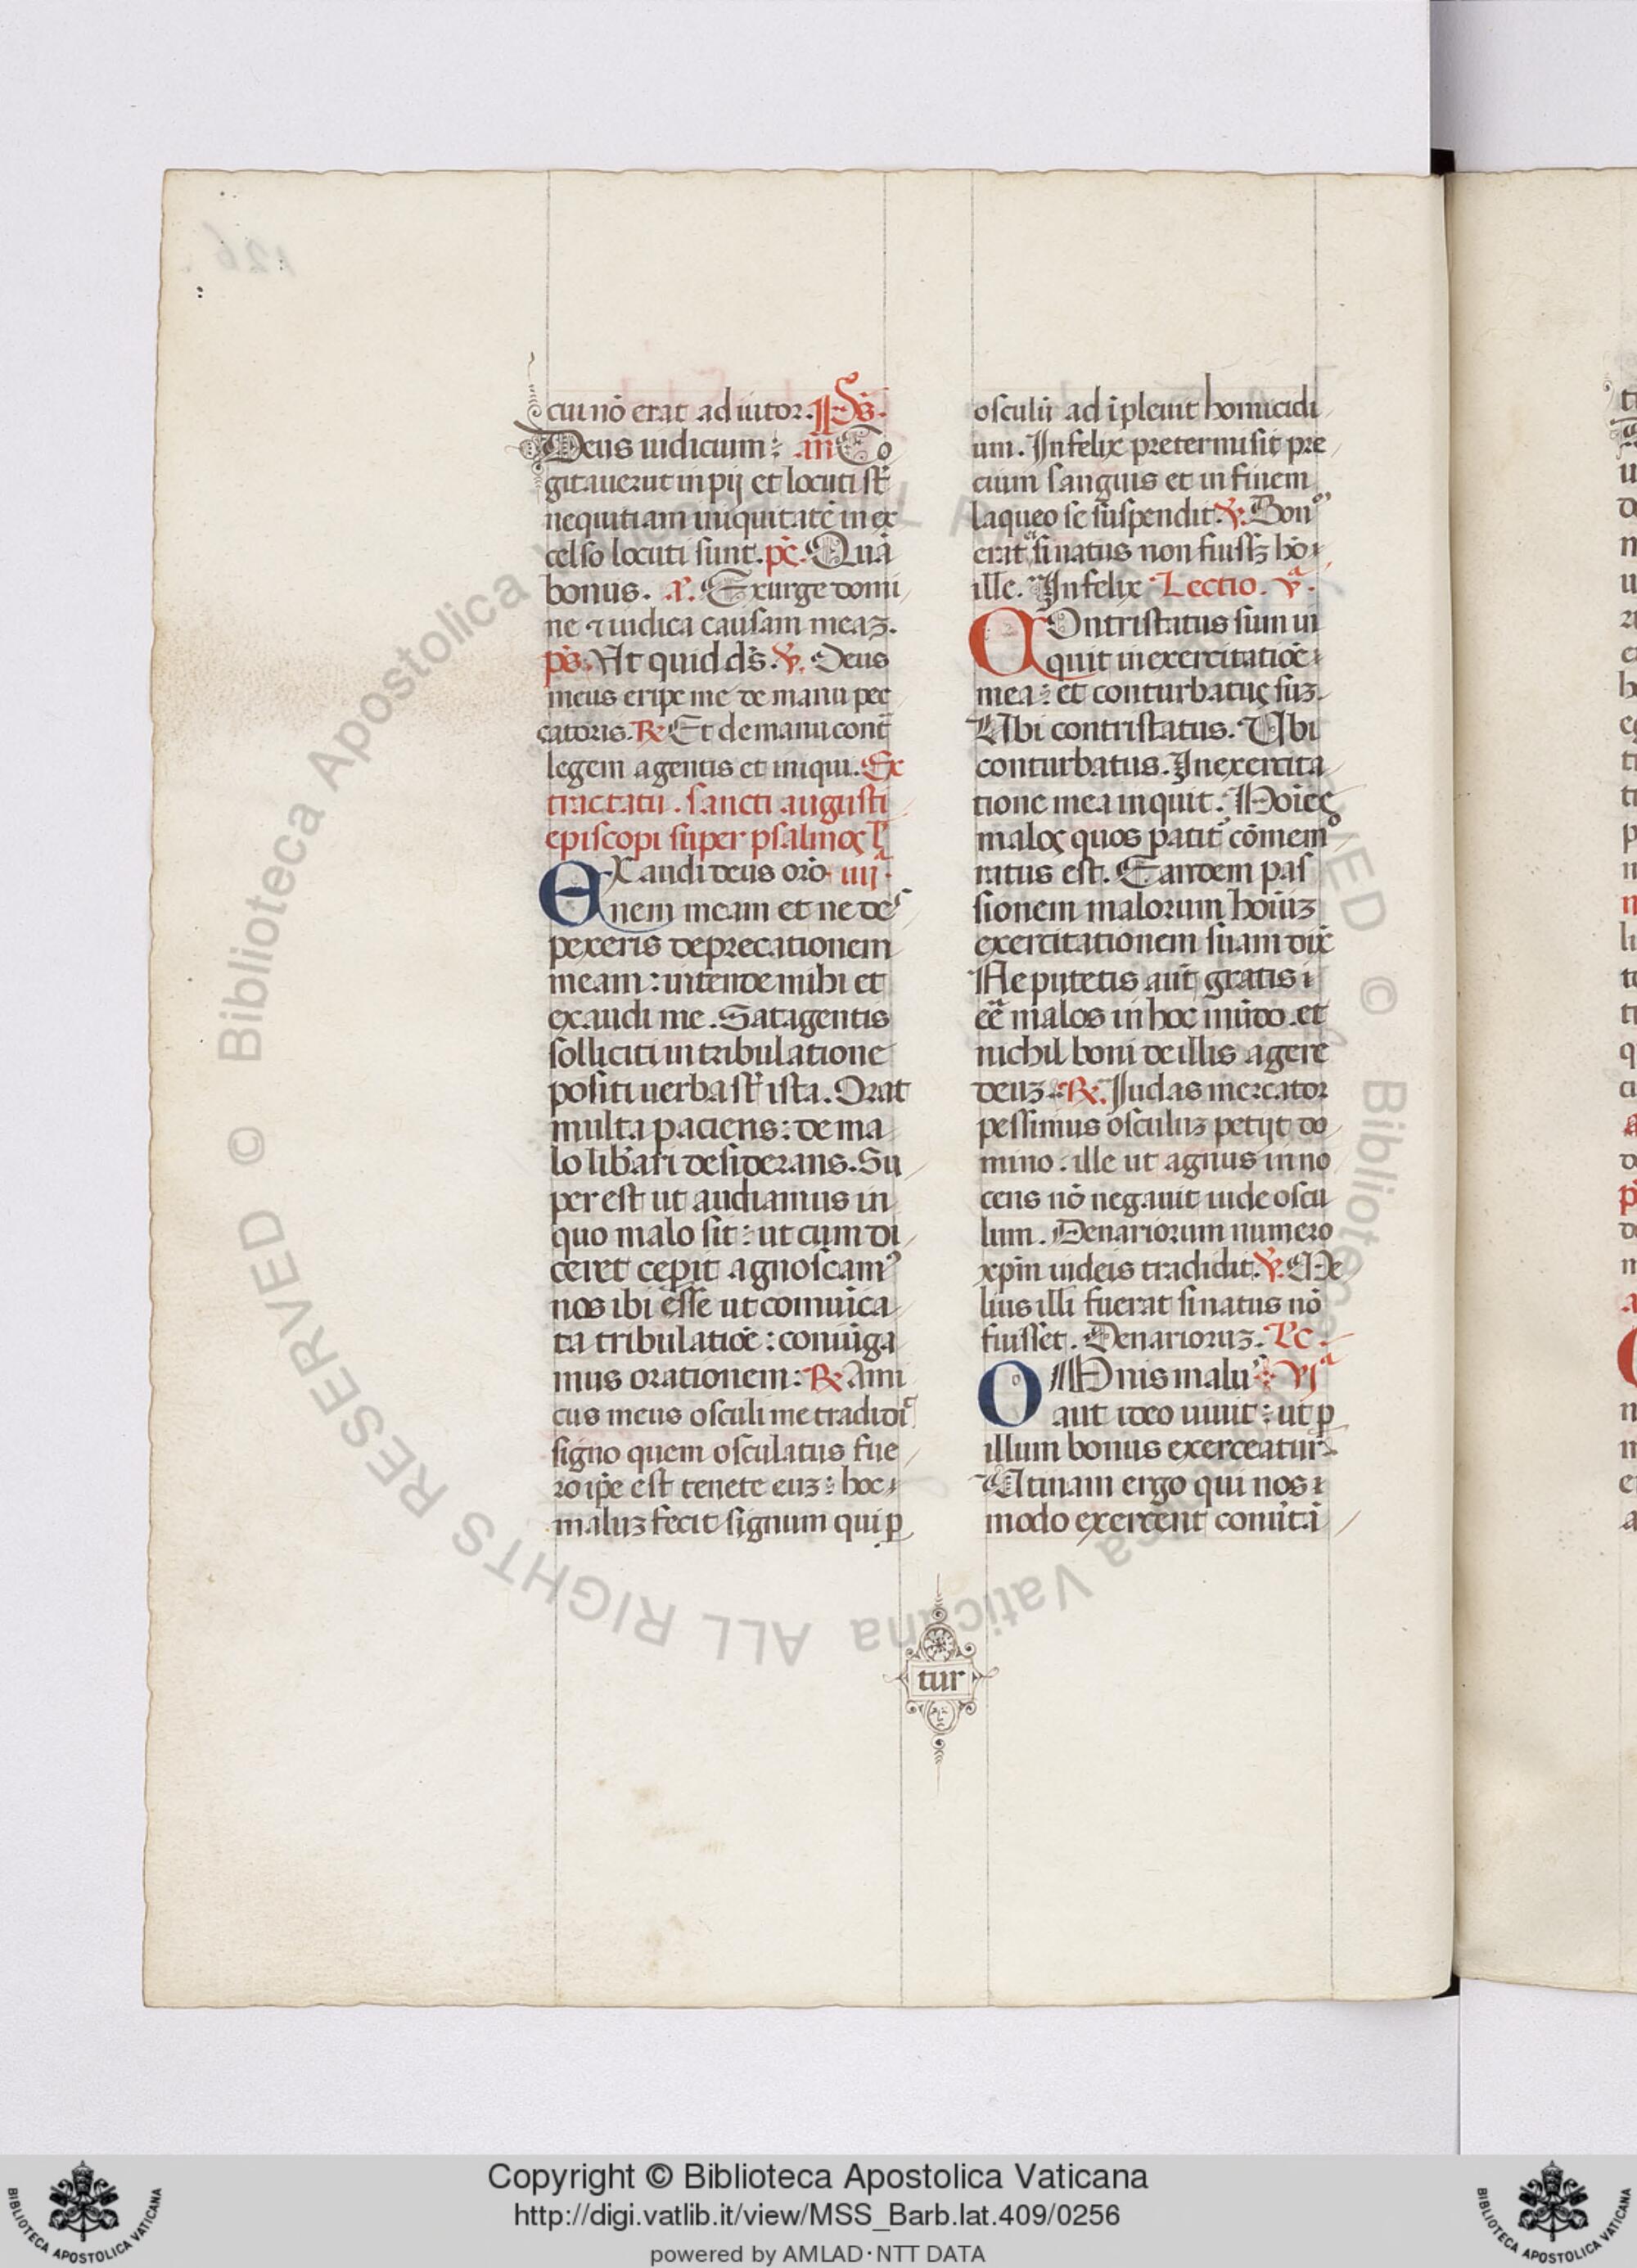 cui nō erat adiutor. ps̄.
Deus iudicium: an̄ Co
gitauerūt inpij et locuti sūt
nequitiam iniquitatē in ex
celso locuti sunt. ps̄. Quā
bonus. a. Exurge domi
ne ⁊ iudica causam meaʒ.
ps̄. Vt quid ds̄. ℣. Deus
meus eripe me de manu pec
catoris. ℞ Et de manu cont̄
legem agentis et iniqui. Ex
tractatu. sancti augusti
episcopi super psalmos l̄
EXaudi deus orō iiijᵃ.
nem meam et ne des
pexeris deprecationem
meam: intende mihi et
exaudi me. Satagentis
solliciti in tribulatione
positi uerba sūt ista. Orat
multa paciens: de ma
lo lib̄ari desiderans. Su
per est ut audiamus in
quo malo sit: ut cum di
ceret cepit agnoscamꝰ
nos ibi esse ut comūica
ta tribulatiōe: coniūga
mus orationem: ℞ Ami
cus meus osculi me tradidit
signo quem osculatus fue
ro ip̄e est tenete euʒ: hoc
maluʒ fecit signum qui ꝑ
osculū adīpleuit homicidi
um. Infelix pretermisit pre
cium sanguis et in finem
laqueo se suspendit. ℣. Bonꝰ
erat si natus non fuissʒ hō
ille. Infelix Lectio. vᵃ.
COntristatus sum in
quit in exercitatiōe
mea: et conturbatus suʒ.
Ubi contristatus. Ubi
conturbatus. In exercita
tione mea inquit. Hoīes
malos quos patit᷑ cōmemo
ratus est. Eandem pas
sionem malorum hoīuʒ
exercitationem suam dix̄
Ne putetis aūt gratis
eē malos in hoc mūdo. et
nichil boni de illis agere
deuʒ. ℞. Iudas mercator
pessimus osculuʒ petijt do
mino. ille ut agnus inno
cens nō negauit iude oscu
lum. Denariorum numero
xp̄m iudeis tradidit. ℣. Me
lius illi fuerat si natus nō
fuisset. Denarioruʒ. Lc̄.
OMnis malus vjᵃ
aut ideo uiuit: ut ꝑ
illum bonus exerceatur
Utinam ergo qui nos
modo exercent conūtā
tur
Copyright © Biblioteca Apostolica Vaticana
http://digi.vatlib.it/view/MSS_Barb.lat.409/0256
powered by AMLAD·NTT DATA